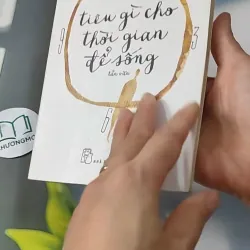 tiêu gì cho
thời gian
để sống
tản văn